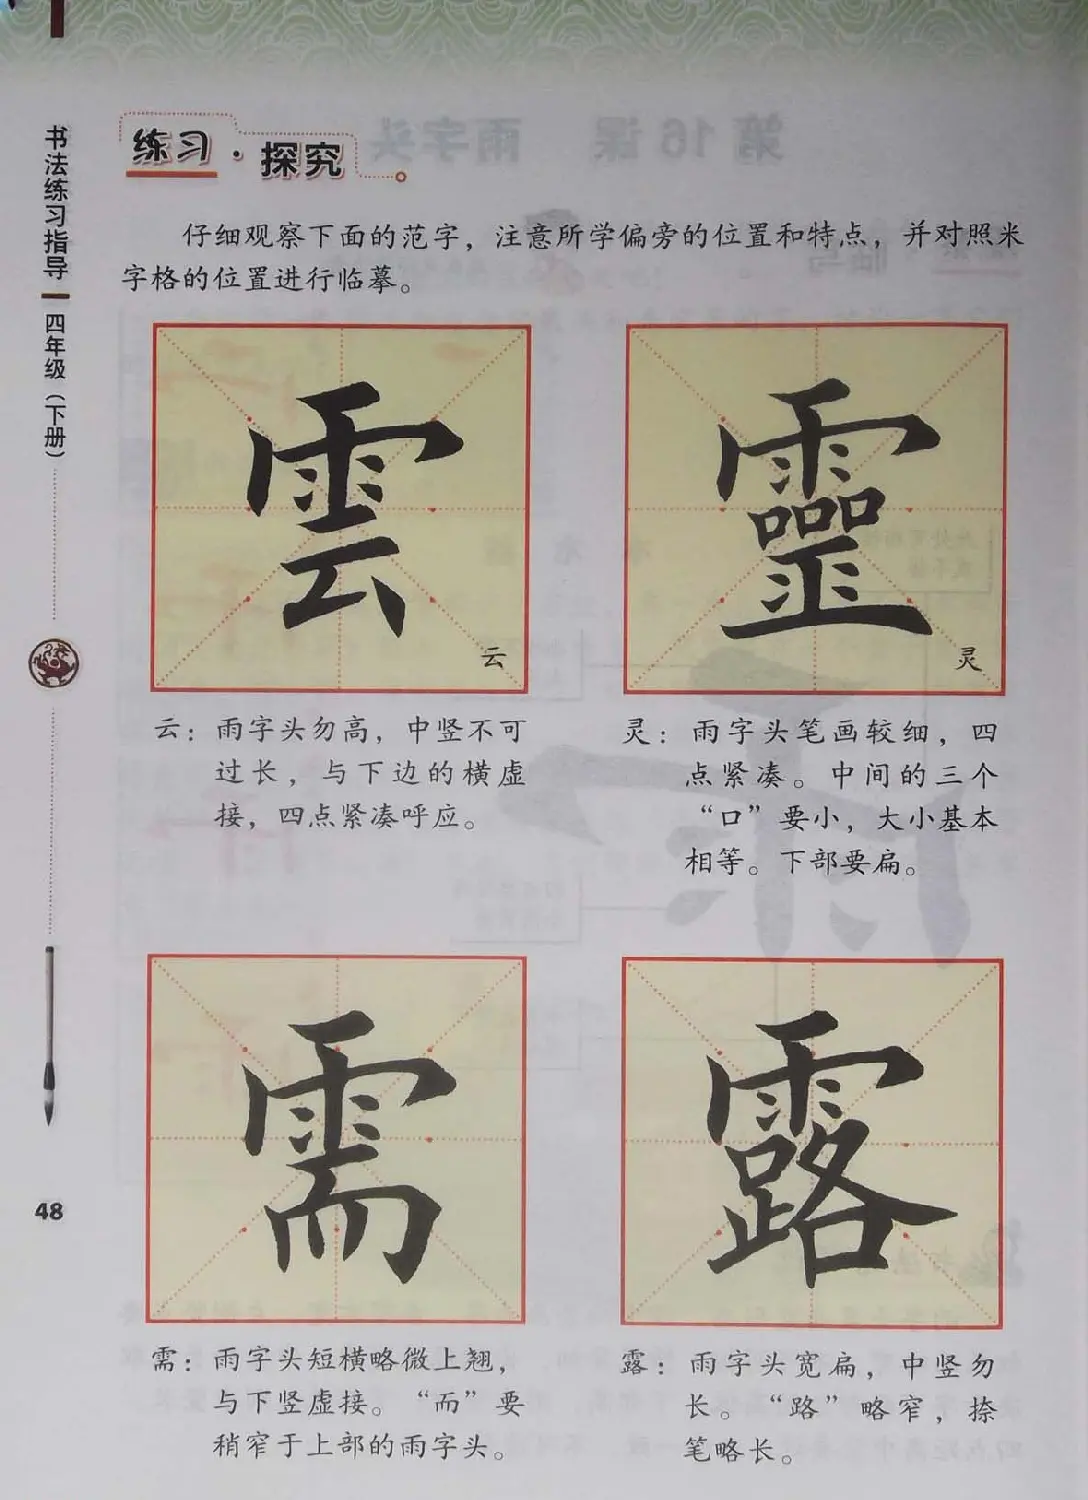 书法练习指导
四年级（下册）
练习·探究
仔细观察下面的范字，注意所学偏旁的位置和特点，并对照米
字格的位置进行临摹。
雲
云
靈
灵
云：雨字头勿高，中竖不可
过长，与下边的横虚
接，四点紧凑呼应。
灵：雨字头笔画较细，四
点紧凑。中间的三个
“口”要小，大小基本
相等。下部要扁。
需
露
需：雨字头短横略微上翘，
与下竖虚接。“而”要
稍窄于上部的雨字头。
露：雨字头宽扁，中竖勿
长。“路”略窄，捺
笔略长。
48
第16课 雨字头